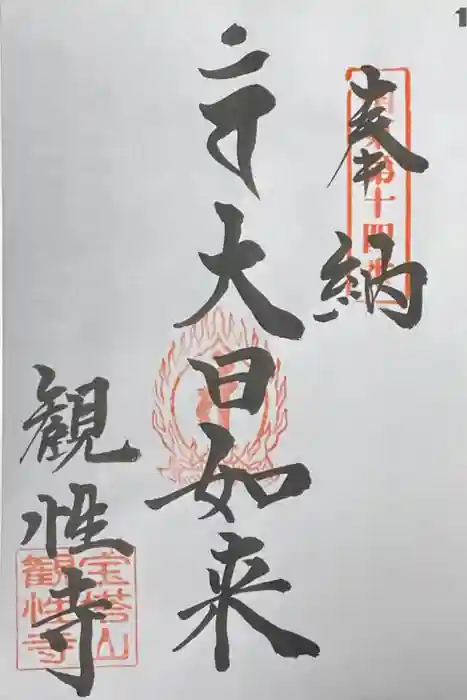 1
奉納
大日如来
観性寺
第十四番
宝塔山
観性寺